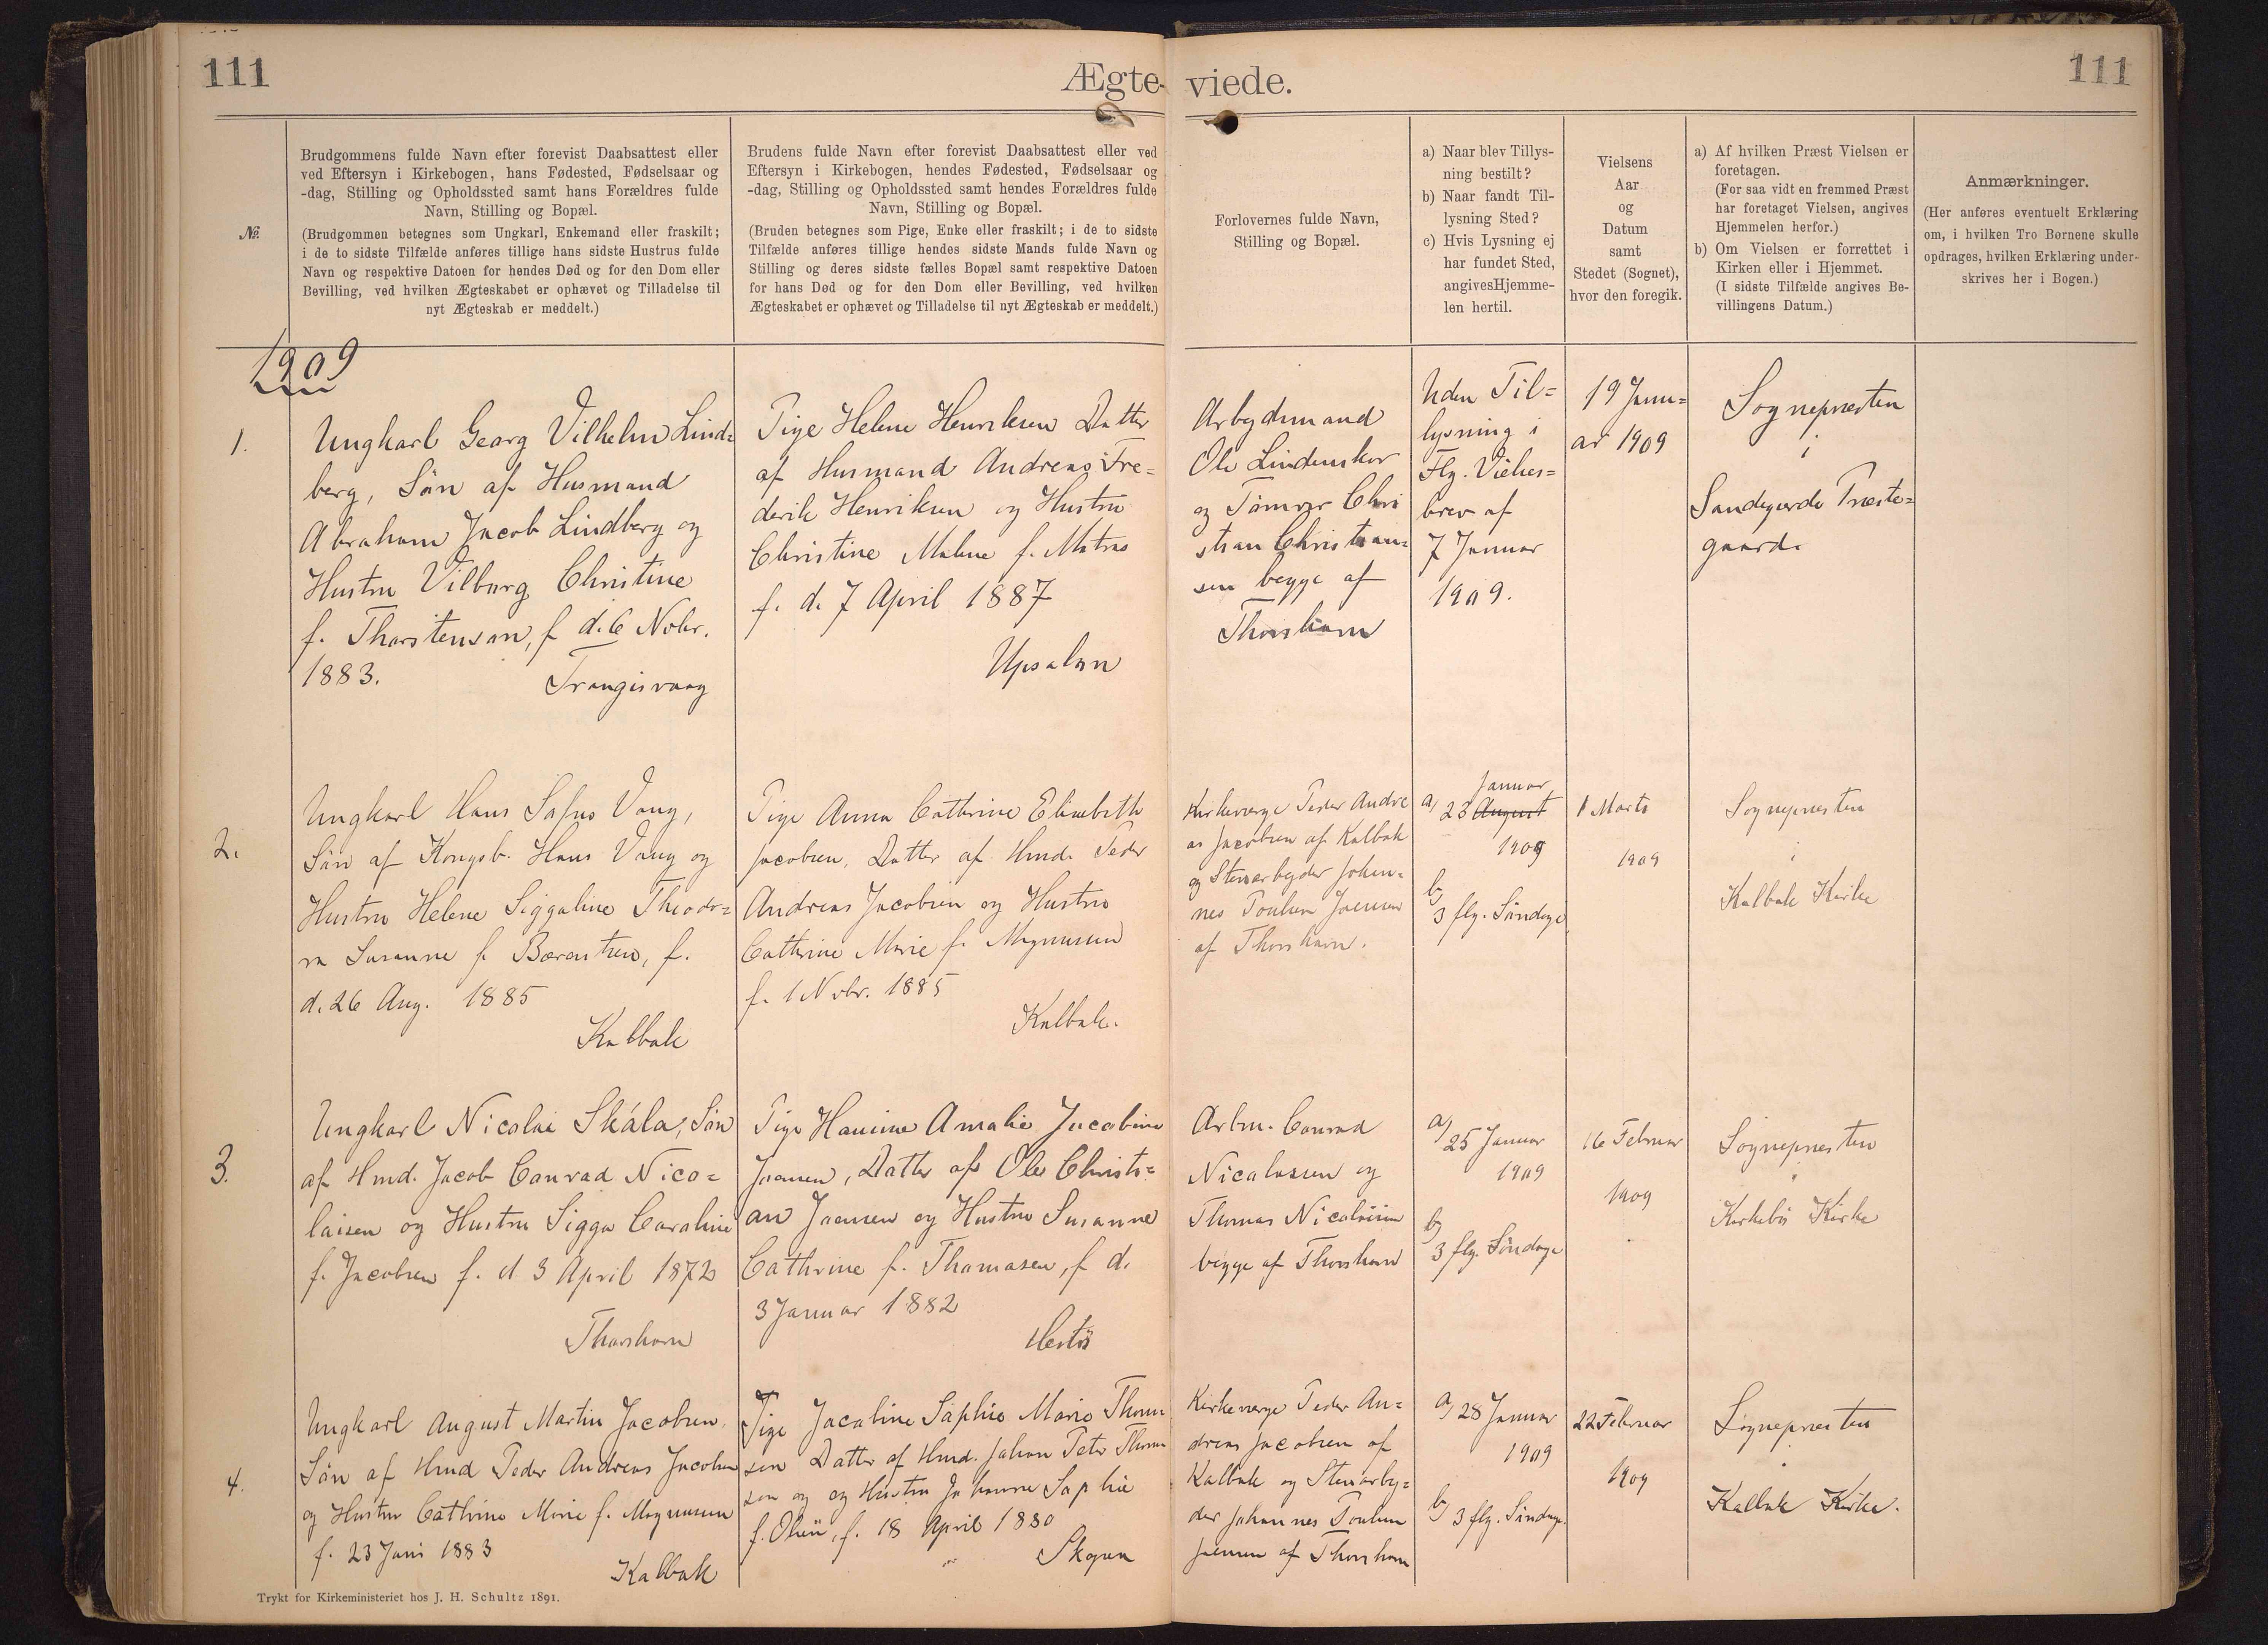 111
Ægte-
viede.
111
№.
Brudgommens fulde Navn efter forevist Daabsattest eller
ved Eftersyn i Kirkebogen, hans Fødested, Fødselsaar og
-dag, Stilling og Opholdssted samt hans Forældres fulde
Navn, Stilling og Bopæl.
(Brudgommen betegnes som Ungkarl, Enkemand eller fraskilt;
i de to sidste Tilfælde anføres tillige hans sidste Hustrus fulde
Navn og respektive Datoen for hendes Død og for den Dom eller
Bevilling, ved hvilken Ægteskabet er ophævet og Tilladelse til
nyt Ægteskab er meddelt.)
Brudens fulde Navn efter forevist Daabsattest eller ved
Eftersyn i Kirkebogen, hendes Fødested, Fødselsaar og
-dag, Stilling og Opholdssted samt hendes Forældres fulde
Navn, Stilling og Bopæl.
(Bruden betegnes som Pige, Enke eller fraskilt; i de to sidste
Tilfælde anføres tillige hendes sidste Mands fulde Navn og
Stilling og deres sidste fælles Bopæl samt respektive Datoen
for hans Død og for den Dom eller Bevilling, ved hvilken
Ægteskabet er ophævet og Tilladelse til nyt Ægteskab er meddelt.)
Forlovernes fulde Navn,
Stilling og Bopæl.
a) Naar blev Tillys-
ning bestilt?
b) Naar fandt Til-
lysning Sted?
c) Hvis Lysning ej
har fundet Sted,
angivesHjemme-
len hertil.
Vielsens
Aar
og
Datum
samt
Stedet (Sognet),
hvor den foregik.
a) Af hvilken Præst Vielsen er
foretagen.
(For saa vidt en fremmed Præst
har foretaget Vielsen, angives
Hjemmelen herfor.)
b) Om Vielsen er forrettet i
Kirken eller i Hjemmet.
(I sidste Tilfælde angives Be-
villingens Datum.)
Anmærkninger.
(Her anføres eventuelt Erklæring
om, i hvilken Tro Børnene skulle
opdrages, hvilken Erklæring under-
skrives her i Bogen.)
1909
1.
Ungkarl Georg Vilhelm Lind=
berg, Søn af Husmand
Abraham Jacob Lindberg og
Hustru Vilborg Christine
f. Thorstenson, f d. 6 Nobr.
1883.
Trangisvaag
Pige Helene Henriksen Datter
af Husmand Andreas Fre=
derik Henriksen og Hustru
Christine Malene f. Matras
f. d. 7 April 1887
Arbejdsmand
Ole Lindenskov
og Tømrer Chri
stian Christian=
sen begge af
Thorshavn
Uden Til=
lysning i
Flg. Vielses=
brev af
7 Januar
1909.
19 Janu=
ar 1909
Sognepresten
i
Sandegærde Præste=
gaard.
2.
Ungkarl Hans Vang,
Søn af Kongsb. Hans Vang og
Hustru Helene Siggaline Theodo=
ra Susanne f. Bærentsen, f.
d. 26 Aug. 1885
Kalbak
Pige Anna Cathrine Elisabeth
Jacobsen, Datter af Hmd. Peder
Andreas Jacobsen og Hustru
Cathrine Marie f. Magnussen
f. 1 Nobr. 1885
Kalbak.
Kirkeverge Peder Andre
as Jacobsen af Kalbak
og Stenarbejder Johan=
nes Poulsen Joensen
af Thorshavn.
Januar
a) 23 August
1909
b)
3 flg. Søndage
1 Marts
1909
Sognepresten
i
Kalbak Kirke
3.
Ungkarl Nicolai Skála, Søn
af Hmd. Jacob Conrad Nico=
laisen og Hustru Sigga Caroline
f. Jacobsen f. d 3 April 1872
Thorshavn
Pige Hansine Amalie Jacobine
Joensen, Datter af Ole Christi=
an Joensen og Hustru Susanne
Cathrine f. Thomasen, f. d.
3 Januar 1882
Hestø
Arbm. Conrad
Nicolaisen og
Thomas Nicolaisen
begge af Thorshavn
a)
25 Januar
1909
b)
3 flg. Søndage
16 Februar
1909
Sognepresten
Kirkebø Kirke
4.
Ungkarl August Martin Jacobsen,
Søn af Hmd Peder Andreas Jacobsen
og Hustru Cathrine Marie f. Magnussen
f. 23 Juni 1883
Kalbak
Pige Jacobine Sophie Marie Thom
sen Datter af Hmd. Johan Peter Thom
sen og og Hustru Johanne Sophie
f. Olsen, f. 18 April 1880
Kirkeverge Peder An=
dreas Jacobsen af
Kalbak og Stenarbej=
der Johannes Poulsen
Joensen af Thorshavn
a) 28 Januar
1909
b) 3 flg. Søndage.
22 Februar
1909
Sognepresten
Kalbak Kirke.
Trykt for Kirkeministeriet hos J. H. Schultz 1891.